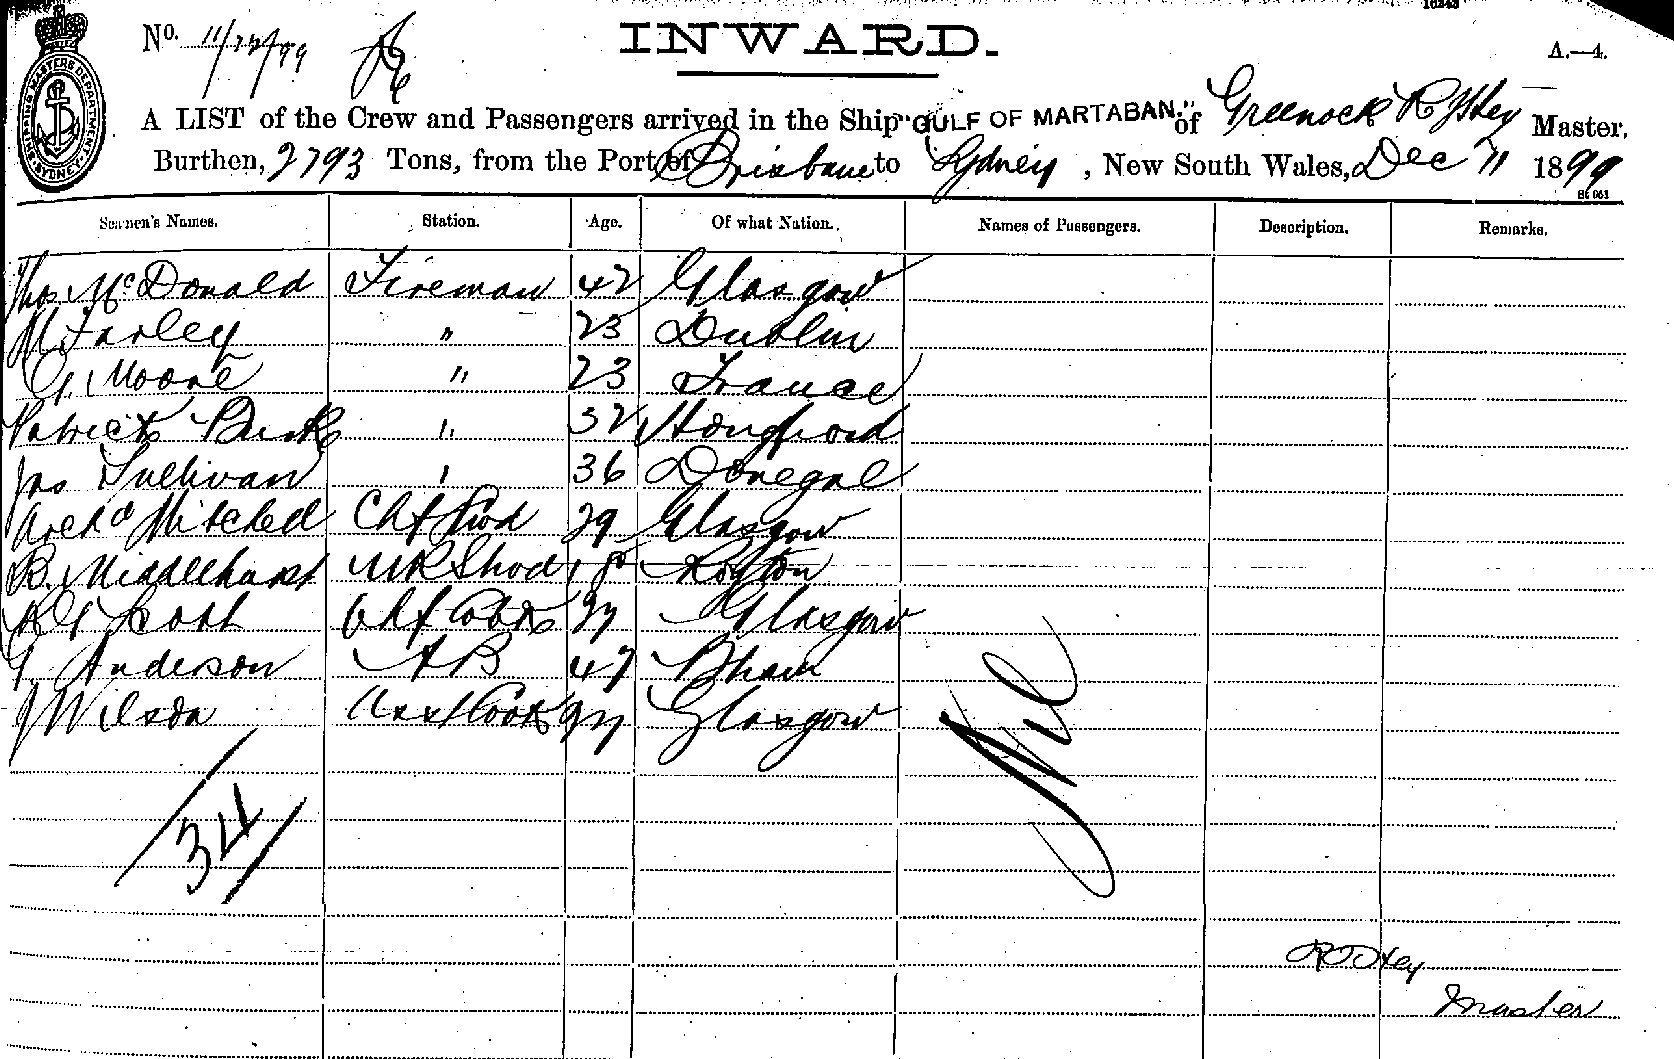 16243
No. 11/12/99
INWARD.
A.—4.
A LIST of the Crew and Passengers arrived in the Ship "GULF OF MARTABAN," of Greenock Master,
Burthen, 2793 Tons, from the Port of Brisbane to Sydney, New South Wales, Dec 11 1899
Seamen's Names. Station. Age. Of what Nation. Names of Passengers. Description. Remarks.
Thos McDonald Fireman 42 Glasgow
M Farley " 23 Dublin
G. Moore " 23 France
Patrick Burke " 32
Jas Sullivan " 36 Donegal
Archd Mitchell 29 Glasgow
R. Middlehurst
Scott 27 Glasgow
Anderson AB 47 Bham
J Wilson Asst Cook 27 Glasgow
Nil
34
Master